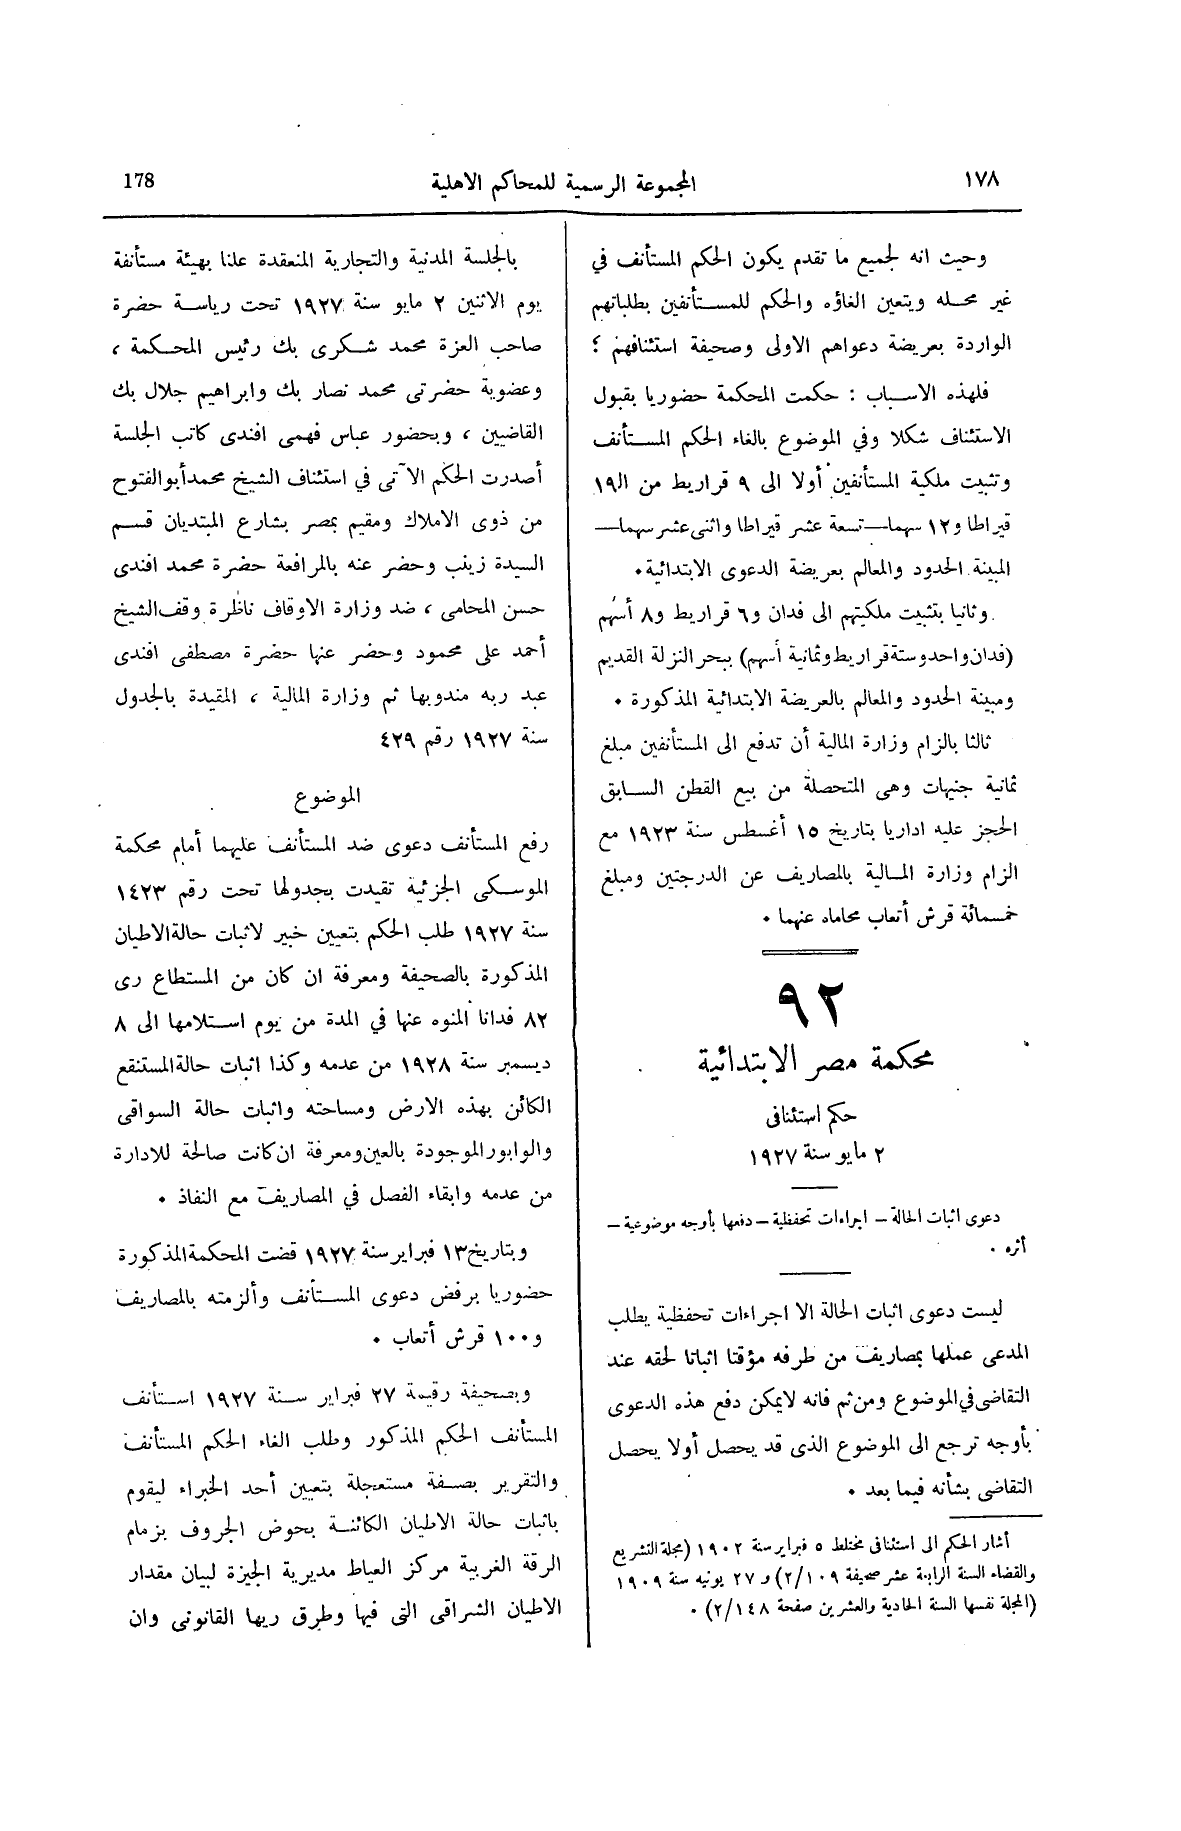 ١٧٨
المجموعة الرسمية للمحاكم الاهلية
178
وحيث انه لجميع ما تقدم يكون الحكم المستأنف في
غير محله ويتعين الغاؤه والحكم للمستأنفين بطلباتهم
الواردة بعريضة دعواهم الاولى وصحيفة استئنافهم ؟
فلهذه الاسباب : حكمت المحكمة حضوريا بقبول
الاستئناف شكلا وفي الموضوع بالغاء الحكم المستأنف
وتثبيت ملكية المستأنفين أولا الى ٩ قراريط من الـ١٩
قيراطا و١٢ سهما—تسعة عشر قيراطا واثنى عشر سهما—
المبينة الحدود والمعالم بعريضة الدعوى الابتدائية.
وثانيا بتثبيت ملكيتهم الى فدان و٦ قراريط و٨ أسهم
(فدان واحد وستة قراريط وثمانية أسهم) ببحر النزلة القديم
ومبينة الحدود والمعالم بالعريضة الابتدائية المذكورة .
ثالثا بالزام وزارة المالية أن تدفع الى المستأنفين مبلغ
ثمانية جنيهات وهى المتحصلة من بيع القطن السابق
الحجز عليه اداريا بتاريخ ١٥ أغسطس سنة ١٩٢٣ مع
الزام وزارة المالية بالمصاريف عن الدرجتين ومبلغ
خمسمائة قرش أتعاب محاماه عنهما .
٩٢
محكمة مصر الابتدائية
حكم استئنافى
٢ مايو سنة ١٩٢٧
دعوى اثبات الحالة – اجراءات تحفظية – دفعها بأوجه موضوعية –
أثره .
ليست دعوى اثبات الحالة الا اجراءات تحفظية يطلب
المدعى عملها بمصاريف من طرفه مؤقتا اثباتا لحقه عند
التقاضى في الموضوع ومن ثم فانه لايمكن دفع هذه الدعوى
بأوجه ترجع الى الموضوع الذى قد يحصل أولا يحصل
التقاضى بشأنه فيما بعد .
أشار الحكم الى استئنافى مختلط ٥ فبراير سنة ١٩٠٢ (مجلة التشريع
والقضاء السنة الرابعة عشر صحيفة ١٠٩/٢) و ٢٧ يونيه سنة ١٩٠٩
(المجلة نفسها السنة الحادية والعشرين صفحة ١٤٨/٢) .
بالجلسة المدنية والتجارية المنعقدة علنا بهيئة مستأنفة
يوم الاثنين ٢ مايو سنة ١٩٢٧ تحت رياسة حضرة
صاحب العزة محمد شكرى بك رئيس المحكمة ،
وعضوية حضرتى محمد نصار بك وابراهيم جلال بك
القاضيين ، وبحضور عباس فهمى افندى كاتب الجلسة
أصدرت الحكم الآتى في استئناف الشيخ محمد أبو الفتوح
من ذوى الاملاك ومقيم بمصر بشارع المبتديان قسم
السيدة زينب وحضر عنه بالمرافعة حضرة محمد افندى
حسن المحامى ، ضد وزارة الاوقاف ناظرة وقف الشيخ
أحمد على محمود وحضر عنها حضرة مصطفى افندى
عبد ربه مندوبها ثم وزارة المالية ، المقيدة بالجدول
سنة ١٩٢٧ رقم ٤٢٩
الموضوع
رفع المستأنف دعوى ضد المستأنف عليهما أمام محكمة
الموسكى الجزئية تقيدت بجدولها تحت رقم ١٤٢٣
سنة ١٩٢٧ طلب الحكم بتعيين خبير لاثبات حالة الاطيان
المذكورة بالصحيفة ومعرفة ان كان من المستطاع رى
٨٢ فدانا المنوه عنها في المدة من يوم استلامها الى ٨
ديسمبر سنة ١٩٢٨ من عدمه وكذا اثبات حالة المستنقع
الكائن بهذه الارض ومساحته واثبات حالة السواقى
والوابور الموجودة بالعين ومعرفة ان كانت صالحة للادارة
من عدمه وابقاء الفصل في المصاريف مع النفاذ .
وبتاريخ ١٣ فبراير سنة ١٩٢٧ قضت المحكمة المذكورة
حضوريا برفض دعوى المستأنف وألزمته بالمصاريف
و١٠٠ قرش أتعاب .
وبصحيفة رقيمة ٢٧ فبراير سنة ١٩٢٧ استأنف
المستأنف الحكم المذكور وطلب الغاء الحكم المستأنف
والتقرير بصفة مستعجلة بتعيين أحد الخبراء ليقوم
باثبات حالة الاطيان الكائنة بحوض الجروف بزمام
الرقة الغربية مركز العياط مديرية الجيزة لبيان مقدار
الاطيان الشراقى التى فيها وطرق ريها القانونى وان